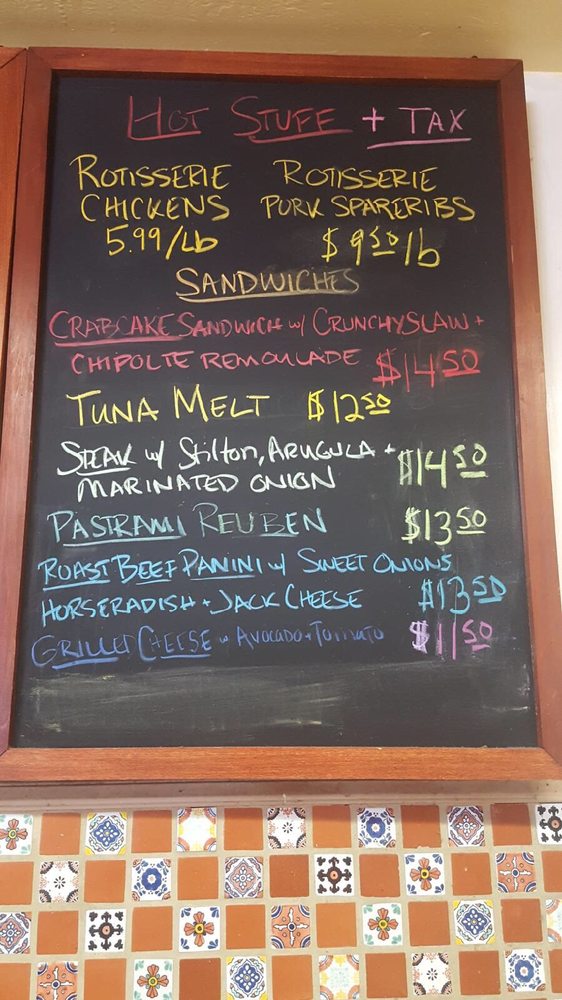 HOT STUFF + TAX
ROTISSERIE CHICKENS 5.99/Lb
ROTISSERIE PORK SPARERIBS $9.50/lb
SANDWICHES
CRABCAKE SANDWICH w/ CRUNCHY SLAW +
CHIPOLTE REMOULADE $14.50
TUNA MELT $12.50
STEAK w/ Stilton, ARUGULA +
MARINATED ONION $14.50
PASTRAMI REUBEN $13.50
ROAST BEEF PANINI w/ SWEET ONIONS
HORSERADISH + JACK CHEESE $13.50
GRILLED CHEESE w AVOCADO + TOMATO $11.50